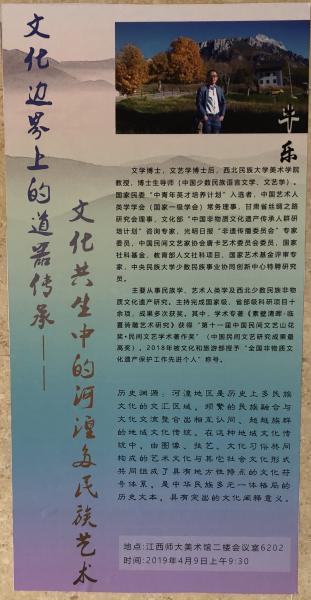 文化边界上的道器传承——
文化共生中的河湟多民族艺术
牛乐
文学博士,文艺学博士后,西北民族大学美术学院
教授,博士生导师(中国少数民族语言文学、文艺学)。
国家民委"中青年英才培养计划"入选者,中国艺术人
类学学会(国家一级学会)常务理事,甘肃省丝绸之路
研究会理事,文化部"中国非物质文化遗产传承人群研
培计划"咨询专家,光明日报"非遗传播委员会"专家
委员,中国民间文艺家协会唐卡艺术委员会委员,国家
社科基金,教育部人文社科项目,国家艺术基金评审专
家,中央民族大学少数民族事业协同创新中心特聘研究
员。
主要从事民族学、艺术人类学及西北少数民族非物
质文化遗产研究。主持完成国家级、省部级科研项目十
余项,成果多次获奖。其中,学术专著《素壁清晖-临
夏砖雕艺术研究》获得"第十一届中国民间文艺山花
奖•民间文艺学术著作奖"(中国民间文艺研究成果最
高奖)。2018年被文化和旅游部授予"全国非物质文化
遗产保护工作先进个人"称号。
历史渊源:河湟地区是历史上多民族
文化的交汇区域,频繁的民族融合与
文化交流整合出相互认同、超越族群
的地域文化传统。在这种地域文化传
统中,由图像、技艺、文化习俗共同
构成的艺术文化与其它社会文化形式
共同组成了具有地方性特点的文化符
号体系,是中华民族多元一体格局的
历史文本,具有突出的文化阐释意义。
地点:江西师大美术馆二楼会议室6202
时间:2019年4月9日上午9:30